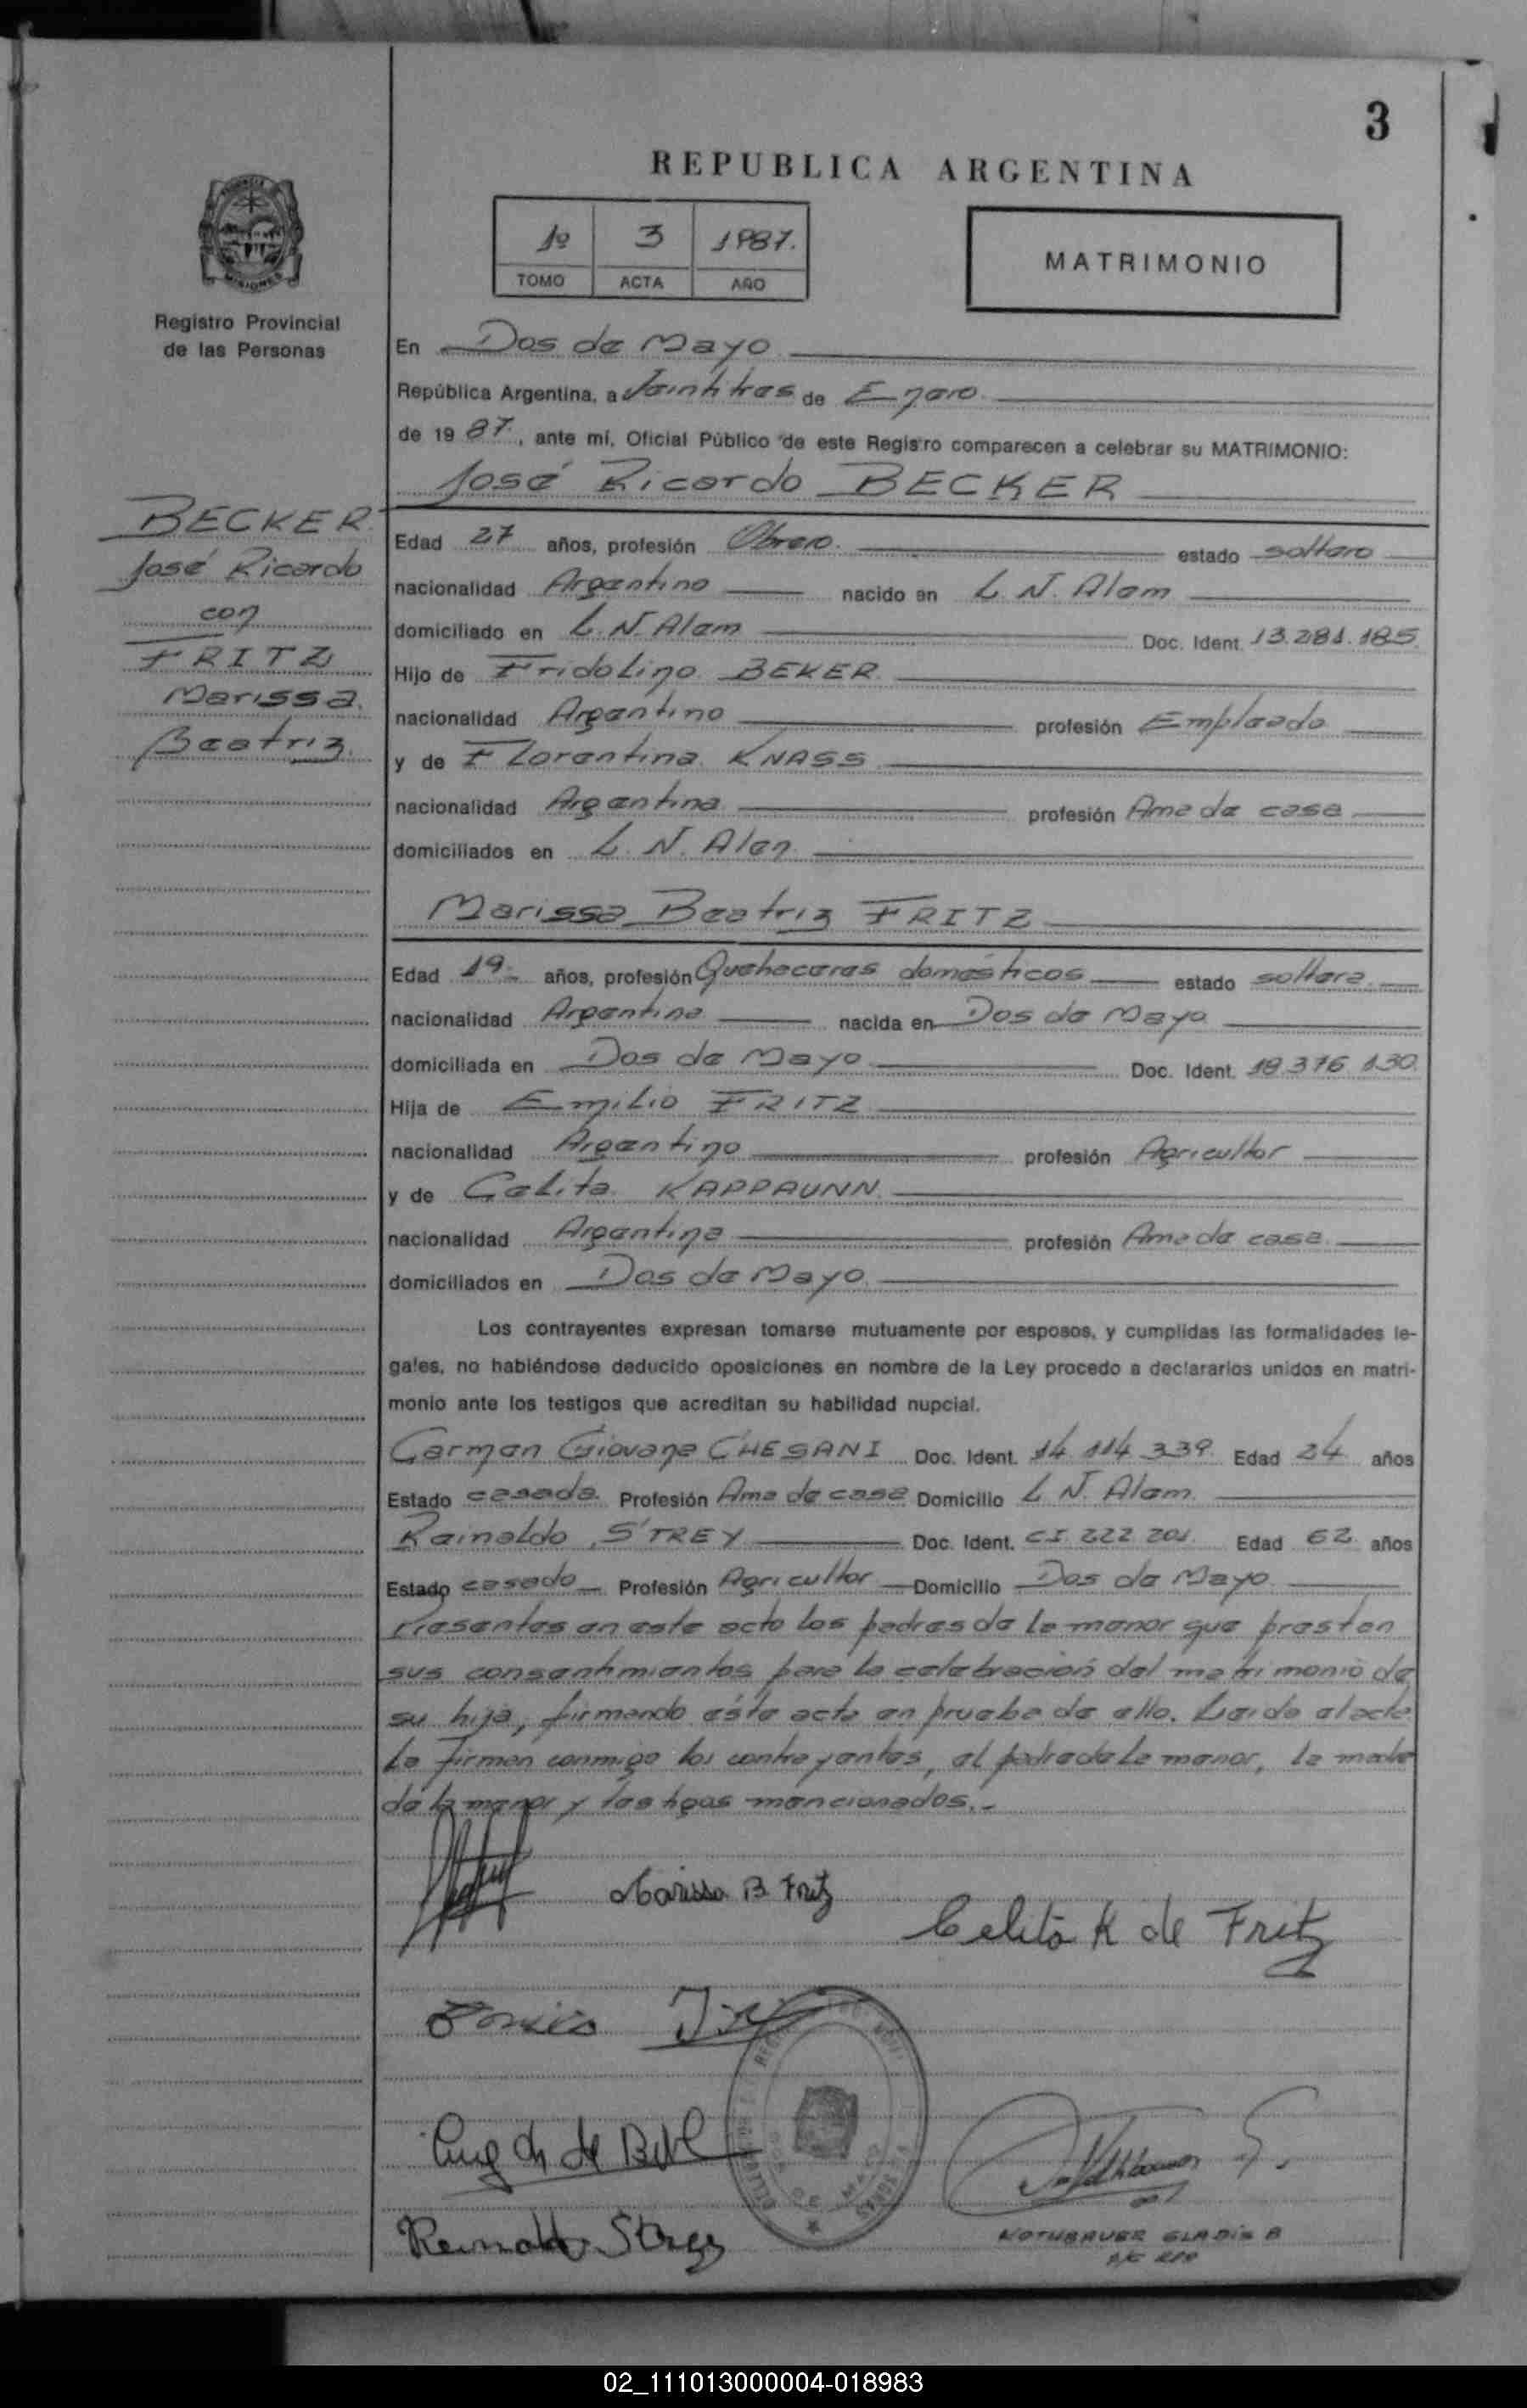 3
REPUBLICA ARGENTINA
1º 3 1987.
TOMO ACTA AÑO
MATRIMONIO
MISIONES
Registro Provincial
de las Personas
BECKER
José Ricardo
con
FRITZ
Marissa
Beatriz.
En Dos de Mayo
República Argentina, a Veintitres de Enero
de 1987, ante mí, Oficial Público de este Registro comparecen a celebrar su MATRIMONIO:
José Ricardo BECKER
Edad 27 años, profesión Obrero. estado soltero
nacionalidad Argentino nacido en L. N. Alem
domiciliado en L. N. Alem Doc. Ident. 13.281.185
Hijo de Fridolino BEKER
nacionalidad Argentino profesión Empleado
y de Florentina KNASS
nacionalidad Argentina profesión Ama de casa
domiciliados en L. N. Alen
Marissa Beatriz FRITZ
Edad 19 años, profesión Quehaceres domésticos estado soltera
nacionalidad Argentina nacida en Dos de Mayo
domiciliada en Dos de Mayo Doc. Ident. 18.376.130
Hija de Emilio FRITZ
nacionalidad Argentino profesión Agricultor
y de Celita KAPPAUNN
nacionalidad Argentina profesión Ama de casa
domiciliados en Dos de Mayo
Los contrayentes expresan tomarse mutuamente por esposos, y cumplidas las formalidades le-
gales, no habiéndose deducido oposiciones en nombre de la Ley procedo a declararlos unidos en matri-
monio ante los testigos que acreditan su habilidad nupcial.
Carmen Giovana CHESANI Doc. Ident. 14.114.339 Edad 24 años
Estado casada Profesión Ama de casa Domicilio L N. Alem
Reinaldo STREY Doc. Ident. CI 222 201. Edad 62 años
Estado casado Profesión Agricultor Domicilio Dos de Mayo
Presentes en este acto los padres de la menor que prestan
sus consentimientos para la celebración del matrimonio de
su hija, firmando ésta acta en prueba de ello. Leida el acta
la firman conmigo los contrayentes, el padre de la menor, la madre
de la menor y testigos mencionados.-
Marissa B Fritz
Celita K de Fritz
Reinaldo Strey
NOTHBAUER GLADIS B
02_111013000004-018983